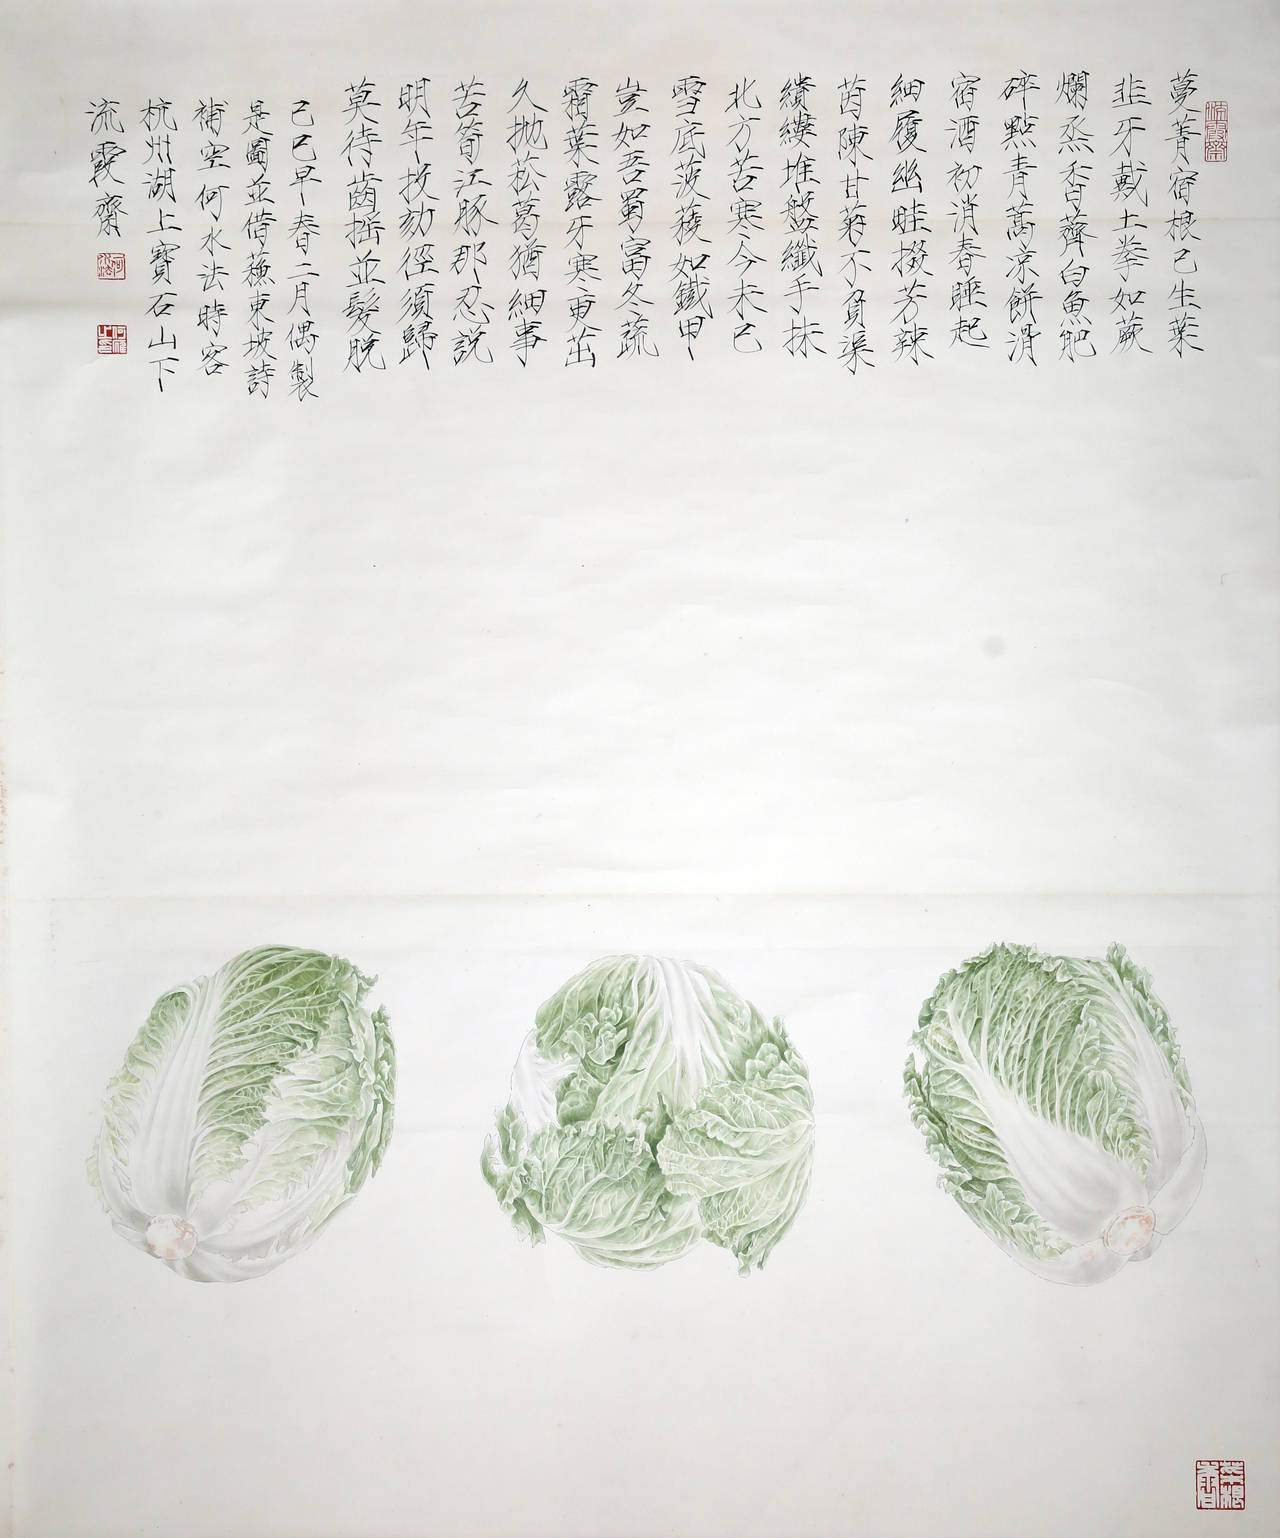 蔓菁宿根已生葉
韭牙戴土拳如蕨
爛烝香薺白魚肥
碎點青蒿涼餅滑
宿酒初消春睡起
細履幽畦掇芳辣
茵陳甘菊不負渠
繢縷堆盤纖手抹
北方苦寒今未已
雪底菠薐如鐵甲
豈如吾蜀富冬蔬
霜葉露牙寒更茁
久拋菘葛猶細事
苦筍江豚那忍說
明年投劾徑須歸
莫待齒搖並髮脫
己巳早春二月偶製
是圖並借蘇東坡詩
補空何水法時客
杭州湖上寶石山下
流霞齋
流霞齋
何
水法
菜根香